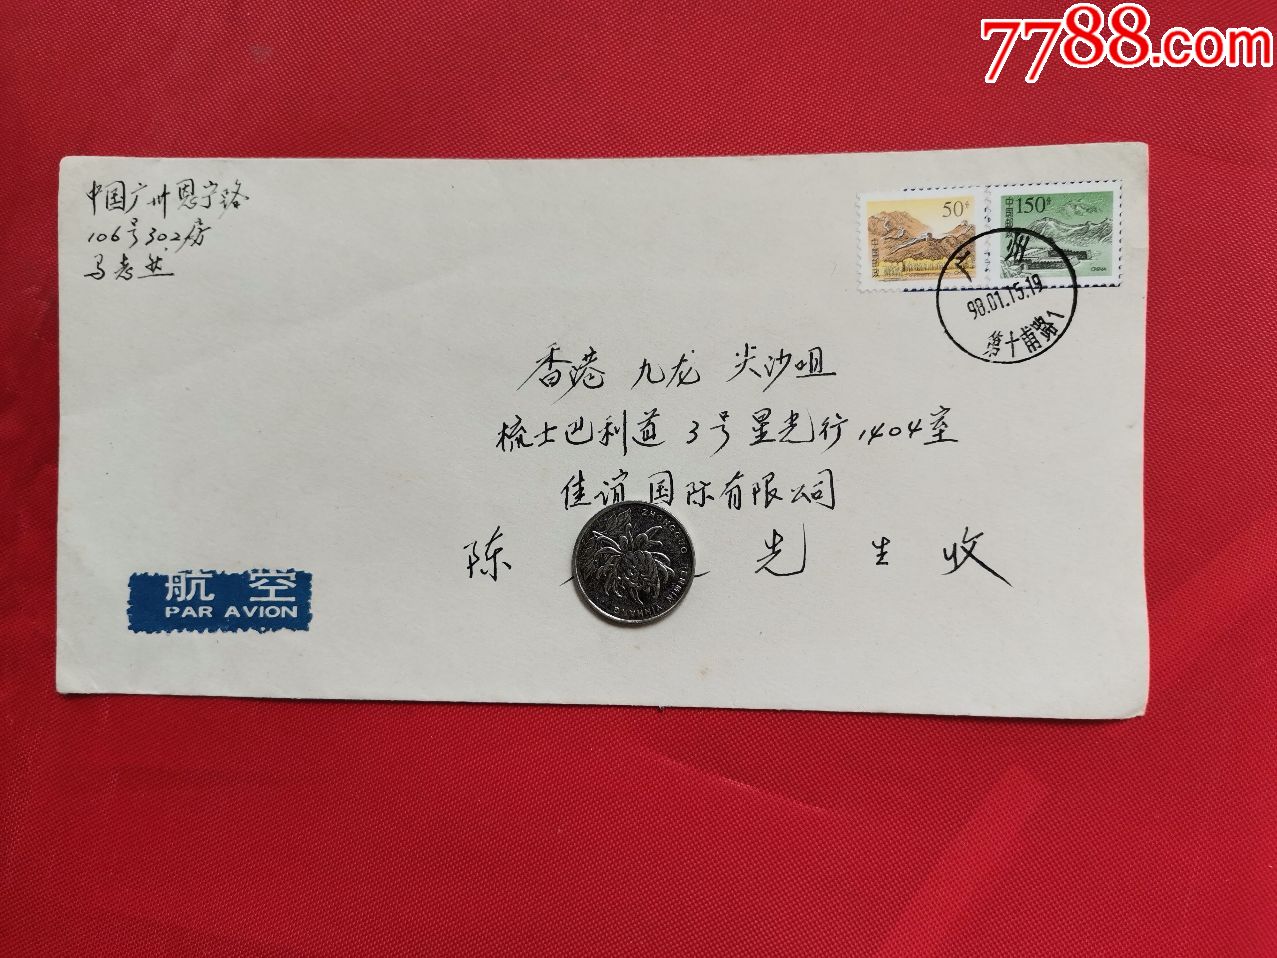 7788.com
中国广州恩宁路
106号302房
马志
50分
中国邮政
150分
中国邮政
CHINA
广州
98.01.15.19
第十甫路1
香港 九龙 尖沙咀
梳士巴利道 3号星光行1404室
佳谊国际有限公司
陈 先 生 收
航空
PAR AVION